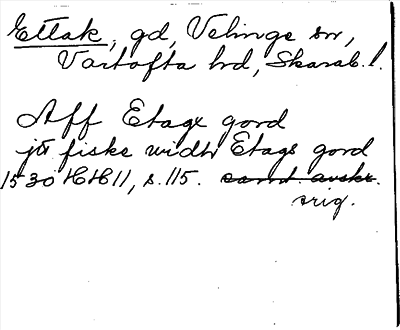 Ettak, gd, Velinge sn,
Vartofta hd, Skarab. l.
Aff Etage gord
jtt fiske widh Etags gord
1530 HH 11, s. 115. samt. avskr.
orig.